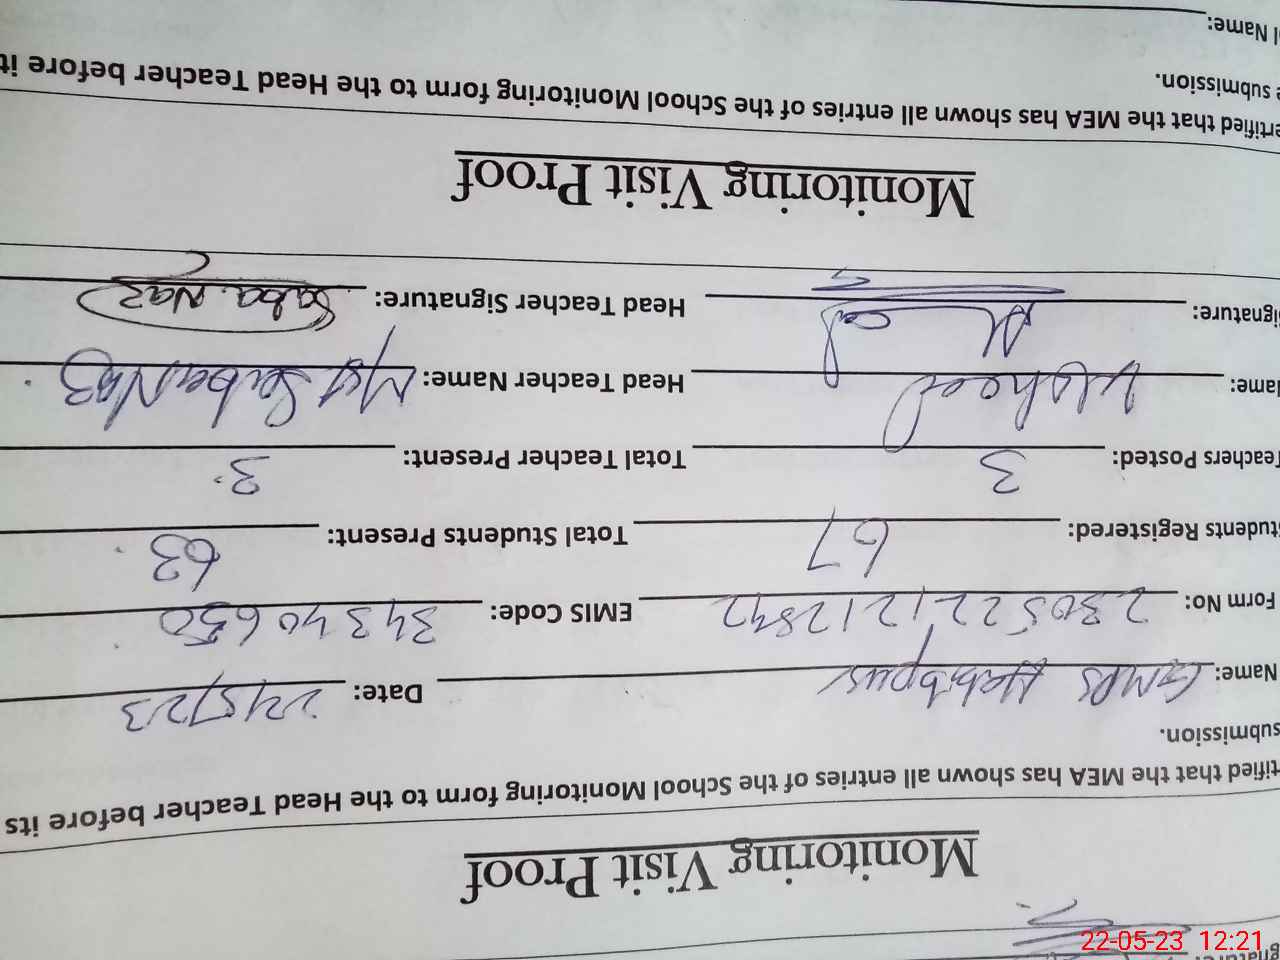 gnature:
Monitoring Visit Proof
rtified that the MEA has shown all entries of the School Monitoring form to the Head Teacher before its
submission.
Name: GMPS Date: 22/5/23
Form No: EMIS Code: 34340650
tudents Registered: 67 Total Students Present: 63
Teachers Posted: 3 Total Teacher Present: 3
Name: Head Teacher Name: Mst Saba Naz
ignature: Head Teacher Signature: Saba Naz
Monitoring Visit Proof
ertified that the MEA has shown all entries of the School Monitoring form to the Head Teacher before it
e submission.
l Name:
22-05-23 12:21